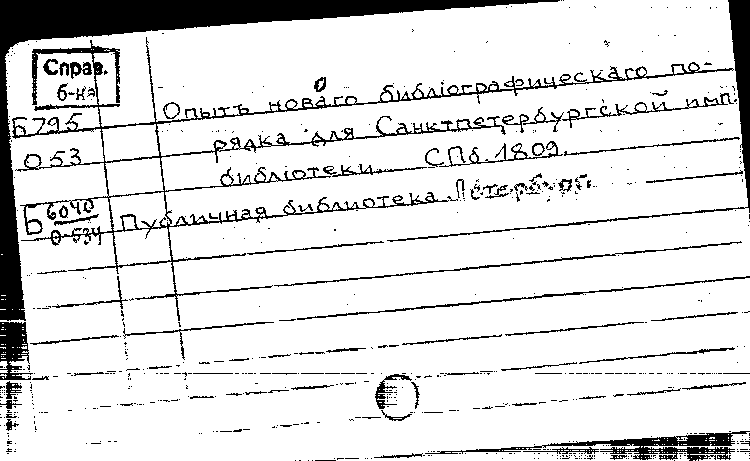 Справ.
б-ка
Б795
О53
Опытъ новаго библіографическаго по-
рядка для Санктпетербургской имп.
библіотеки. СПб. 1809.
Б 6040
О-534
Публичная библиотека. Петербург.